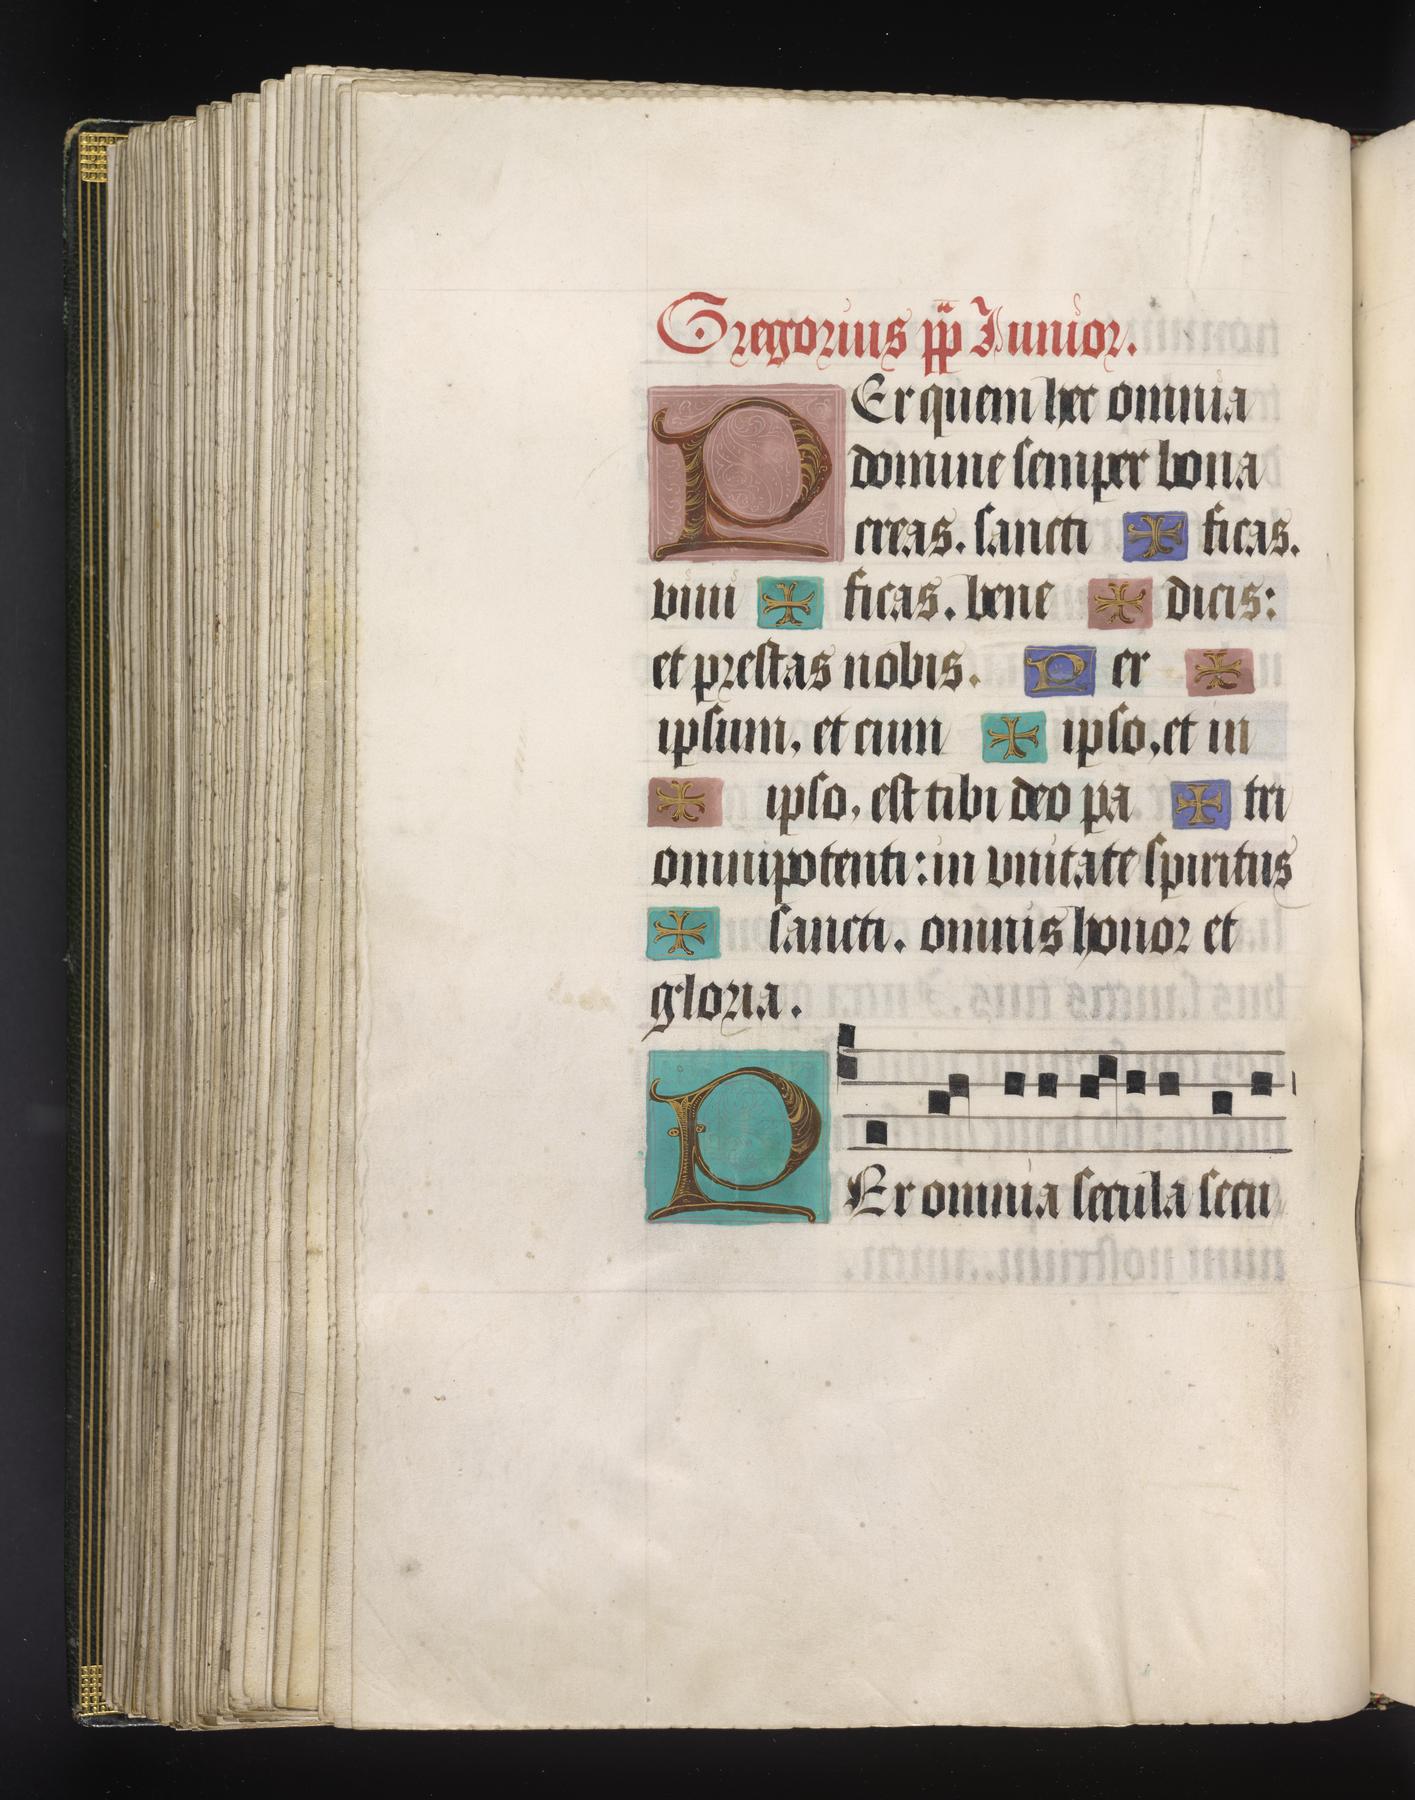 Gregorius pp̄ Iunior.
PEr quem hec omnia
domine semper bona
creas. sancti ✠ ficas.
viui ✠ ficas. bene ✠ dicis:
et prestas nobis. Per ✠
ipsum, et cum ✠ ipso, et in
✠ ipso, est tibi deo pa ✠ tri
omnipotenti: in vnitate spiritus
✠ sancti. omnis honor et
gloria.
PEr omnia secula secu